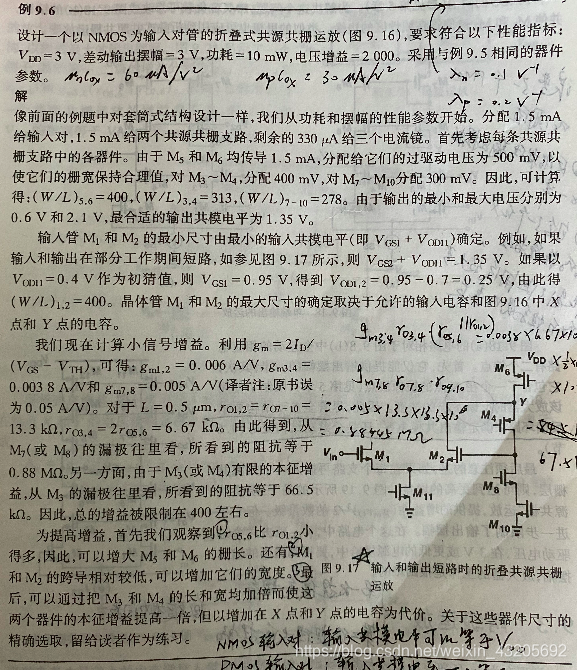 例 9.6
设计一个以 NMOS 为输入对管的折叠式共源共栅运放(图 9.16),要求符合以下性能指标:
V_DD=3 V,差动输出摆幅=3 V,功耗=10 mW,电压增益=2 000。采用与例 9.5 相同的器件
参数。 μnCox = 60 μA/V² μpCox = 30 μA/V² λn = 0.1 V⁻¹
λp = 0.2 V⁻¹
解
像前面的例题中对套筒式结构设计一样,我们从功耗和摆幅的性能参数开始。分配 1.5 mA
给输入对,1.5 mA 给两个共源共栅支路,剩余的 330 μA 给三个电流镜。首先考虑每条共源共
栅支路中的各器件。由于 M5 和 M6 均传导 1.5 mA,分配给它们的过驱动电压为 500 mV,以
使它们的栅宽保持合理值,对 M3~M4,分配 400 mV,对 M7~M10分配 300 mV。因此,可计算
得:(W/L)5,6=400,(W/L)3,4=313,(W/L)7-10=278。由于输出的最小和最大电压分别为
0.6 V 和 2.1 V,最合适的输出共模电平为 1.35 V。
输入管 M1 和 M2 的最小尺寸由最小的输入共模电平(即 VGS1 + VOD11)确定。例如,如果
输入和输出在部分工作期间短路,如参见图 9.17 所示,则 VGS2 + VOD11=1.35 V。如果以
VOD11=0.4 V 作为初猜值,则 VGS1 = 0.95 V,得到 VOD1,2=0.95-0.7=0.25 V,由此得
(W/L)1,2=400。晶体管 M1 和 M2 的最大尺寸的确定取决于允许的输入电容和图 9.16 中 X
点和 Y 点的电容。
我们现在计算小信号增益。利用 gm=2ID/
(VGS - VTH),可得:gm1,2 = 0.006 A/V,gm3,4=
0.003 8 A/V和 gm7,8=0.005 A/V(译者注:原书误
为 0.05 A/V)。对于 L=0.5 μm,rO1,2=rO7-10=
13.3 kΩ,rO3,4=2rO5,6=6.67 kΩ。由此得到,从
M7(或 M8)的漏极往里看,所看到的阻抗等于
0.88 MΩ。另一方面,由于 M3(或 M4)有限的本征增
益,从 M3 的漏极往里看,所看到的阻抗等于 66.5
kΩ。因此,总的增益被限制在 400 左右。
为提高增益,首先我们观察到 rO5,6比 rO1,2小
得多,因此,可以增大 M5 和 M6 的栅长。还有,M1
和 M2 的跨导相对较低,可以增加它们的宽度。最
后,可以通过把 M3 和 M4 的长和宽均加倍而使这
两个器件的本征增益提高一倍,但以增加在 X 点和 Y 点的电容为代价。关于这些器件尺寸的
精确选取,留给读者作为练习。
gm3,4 ro3,4 (ro5,6||ro1,2) =0.0038×6.67×10
gm7,8 ro7,8 · ro9,10
=0.005×13.3×13.3×10⁶
=0.88445 MΩ
67.
VDD
M6
Y
M4
Vin
M1
M2
M8
M11
M10
图 9.17 输入和输出短路时的折叠共源共栅
运放
NMOS 输入对:输入共模电平可以等于V
PMOS输入对:输入共模电
https://blog.csdn.net/weixin_43205692